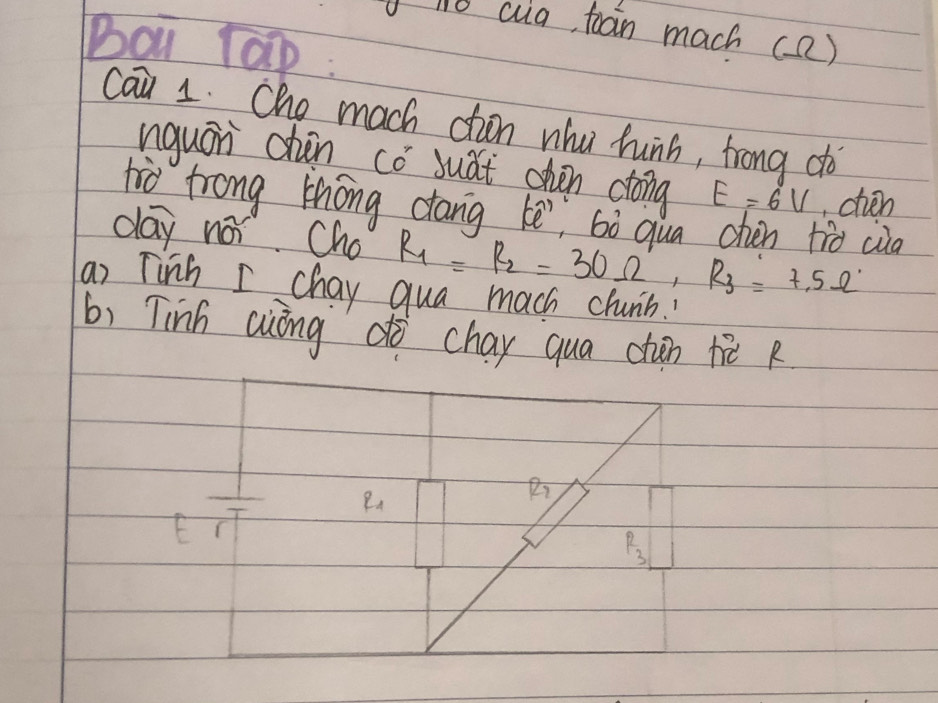 của toàn mạch (Ω)
Bài Tập:
Câu 1. Cho mạch điện như hình, trong đó
nguồn điện có suất điện động E = 6V, điện
trở trong không đáng kể, bỏ qua điện trở của
dây nối. Cho R1 = R2 = 30Ω, R3 = 7,5Ω
a) Tính I chạy qua mạch chính.
b) Tính cường độ chạy qua điện trở R
R1
R2
E r
R3